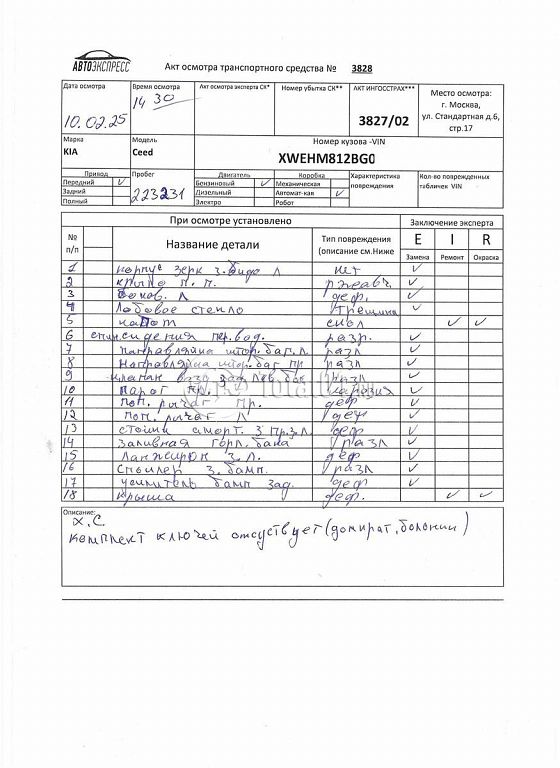 АВТОЭКСПРЕСС
Акт осмотра транспортного средства № 3828
Дата осмотра
10.02.25
Время осмотра
14 30
Акт осмотра эксперта СК*
Номер убытка СК**
АКТ ИНГОССТРАХ***
3827/02
Место осмотра:
г. Москва,
ул. Стандартная д.6,
стр.17
Марка
KIA
Модель
Ceed
Номер кузова -VIN
XWEHM812BG0
Привод
Передний ✓
Задний
Полный
Пробег
223231
Двигатель
Бензиновый ✓
Дизельный
Электро
Коробка
Механическая
Автомат-кая ✓
Робот
Характеристика
повреждения
Кол-во поврежденных
табличек VIN
При осмотре установлено
Заключение эксперта
№
п/п
Название детали
Тип повреждения
(описание см.Ниже
E I R
Замена Ремонт Окраска
1 корпус зерк з.вида Л нет ✓
2 крыло п.п. ржавч. ✓
3 Л деф. ✓
4 Лобовое стекло трещина ✓
5 капот скол ✓ ✓
6 спин.сидения пер.вод. разр. ✓
7 Направляйна штор.баг.л. разл ✓
8 Направляйна штор.баг пр разл ✓
9 клапан зад. лев. разл ✓
10 парог пр. ✓
11 поп. рычаг пр. деф ✓
12 поп. рычаг Л деф ✓
13 стойки аморт. з пр.з.л. деф ✓
14 Заливная горл. бака разл ✓
15 Ланжерон з.л. деф ✓
16 Спойлер з.бамп. разл ✓
17 усилитель бамп зад. деф ✓
18 крыша деф. ✓ ✓
Описание:
Х.С.
комплект ключей отсуствует(домкрат, болонник)